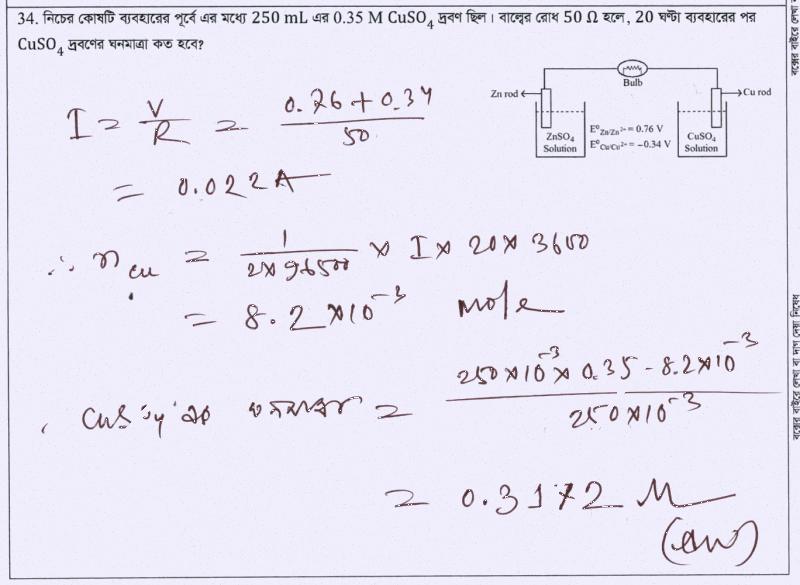 34. নিচের কোষটি ব্যবহারের পূর্বে এর মধ্যে 250 mL এর 0.35 M CuSO4 দ্রবণ ছিল। বাল্বের রোধ 50 Ω হলে, 20 ঘণ্টা ব্যবহারের পর
CuSO4 দ্রবণের ঘনমাত্রা কত হবে?
Bulb
Zn rod
Cu rod
ZnSO4
Solution
E°Zn/Zn2+ = 0.76 V
E°Cu/Cu2+ = −0.34 V
CuSO4
Solution
I = V/R = (0.76 + 0.34)/50
= 0.022 A
∴ nCu = 1/(2×96500) × I × 20 × 3600
= 8.2 × 10^-3 mole
CuSO4 এর ঘনমাত্রা = (250×10^-3 × 0.35 - 8.2×10^-3)/(250×10^-3)
= 0.3172 M
(Ans)
বক্সের বাইরে লেখা বা দাগ দেয়া নিষেধ